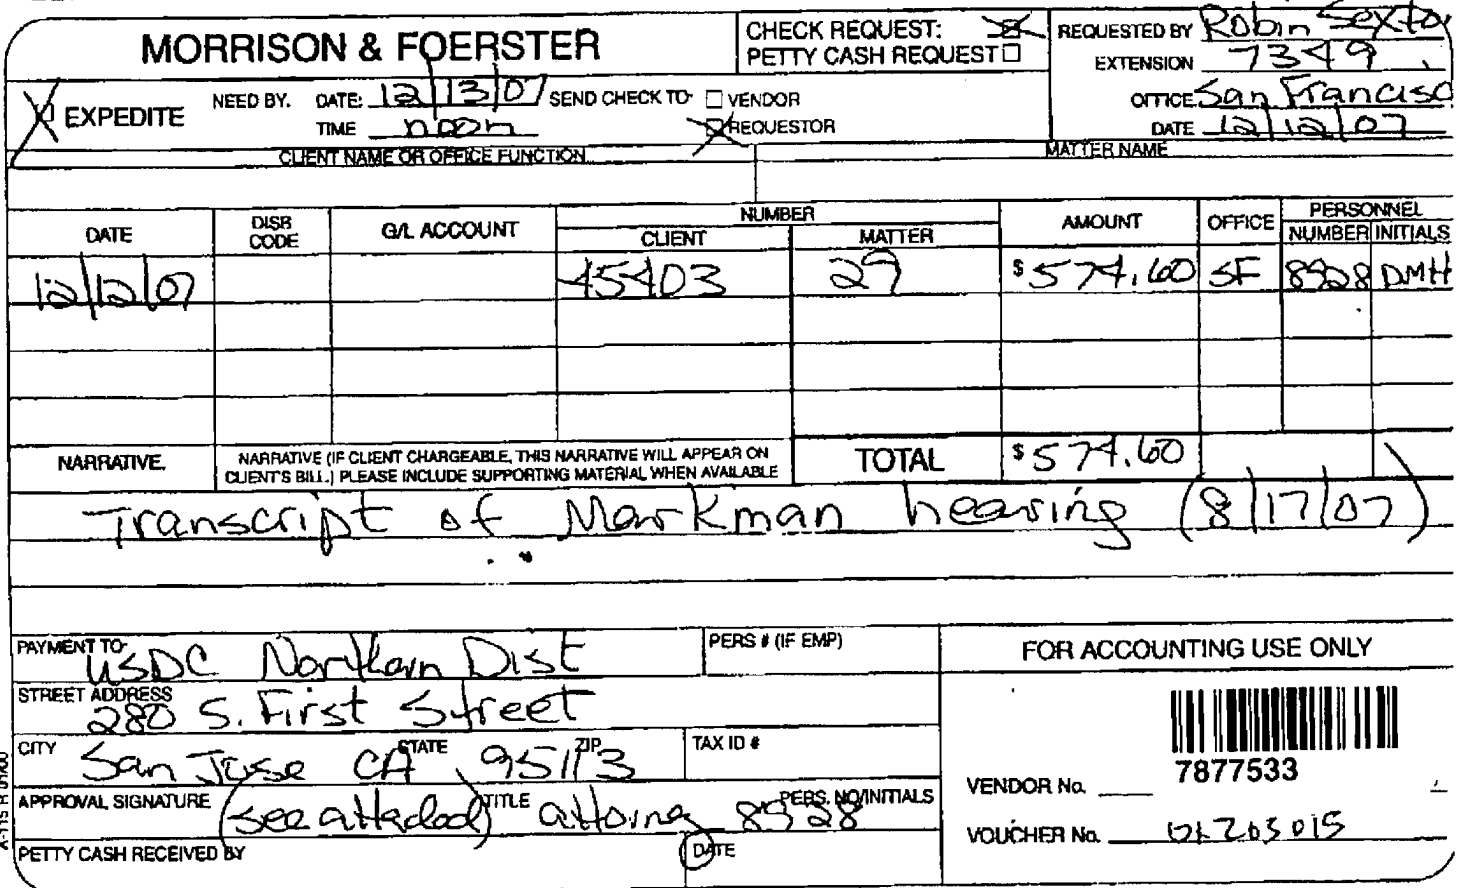 MORRISON & FOERSTER
CHECK REQUEST:
PETTY CASH REQUEST
REQUESTED BY Robin Sexto
EXTENSION 7349
OFFICE San Francisc
DATE 12/12/07
EXPEDITE
NEED BY. DATE: 12/13/07 SEND CHECK TO: VENDOR
TIME noon REQUESTOR
CLIENT NAME OR OFFICE FUNCTION MATTER NAME
DATE DISB CODE G/L ACCOUNT NUMBER CLIENT MATTER AMOUNT OFFICE PERSONNEL NUMBER INITIALS
12/12/07 45403 29 $574.60 SF 8928 DMH
NARRATIVE. NARRATIVE (IF CLIENT CHARGEABLE, THIS NARRATIVE WILL APPEAR ON
CLIENT'S BILL.) PLEASE INCLUDE SUPPORTING MATERIAL WHEN AVAILABLE
TOTAL $574.60
Transcript of Markman hearing (8/17/07)
PAYMENT TO: USDC Northern Dist PERS # (IF EMP)
STREET ADDRESS 280 S. First Street
CITY San Jose STATE CA ZIP 95113 TAX ID #
APPROVAL SIGNATURE (see attached) TITLE attorney PERS. NO/INITIALS 8928
PETTY CASH RECEIVED BY DATE
FOR ACCOUNTING USE ONLY
7877533
VENDOR No.
VOUCHER No.